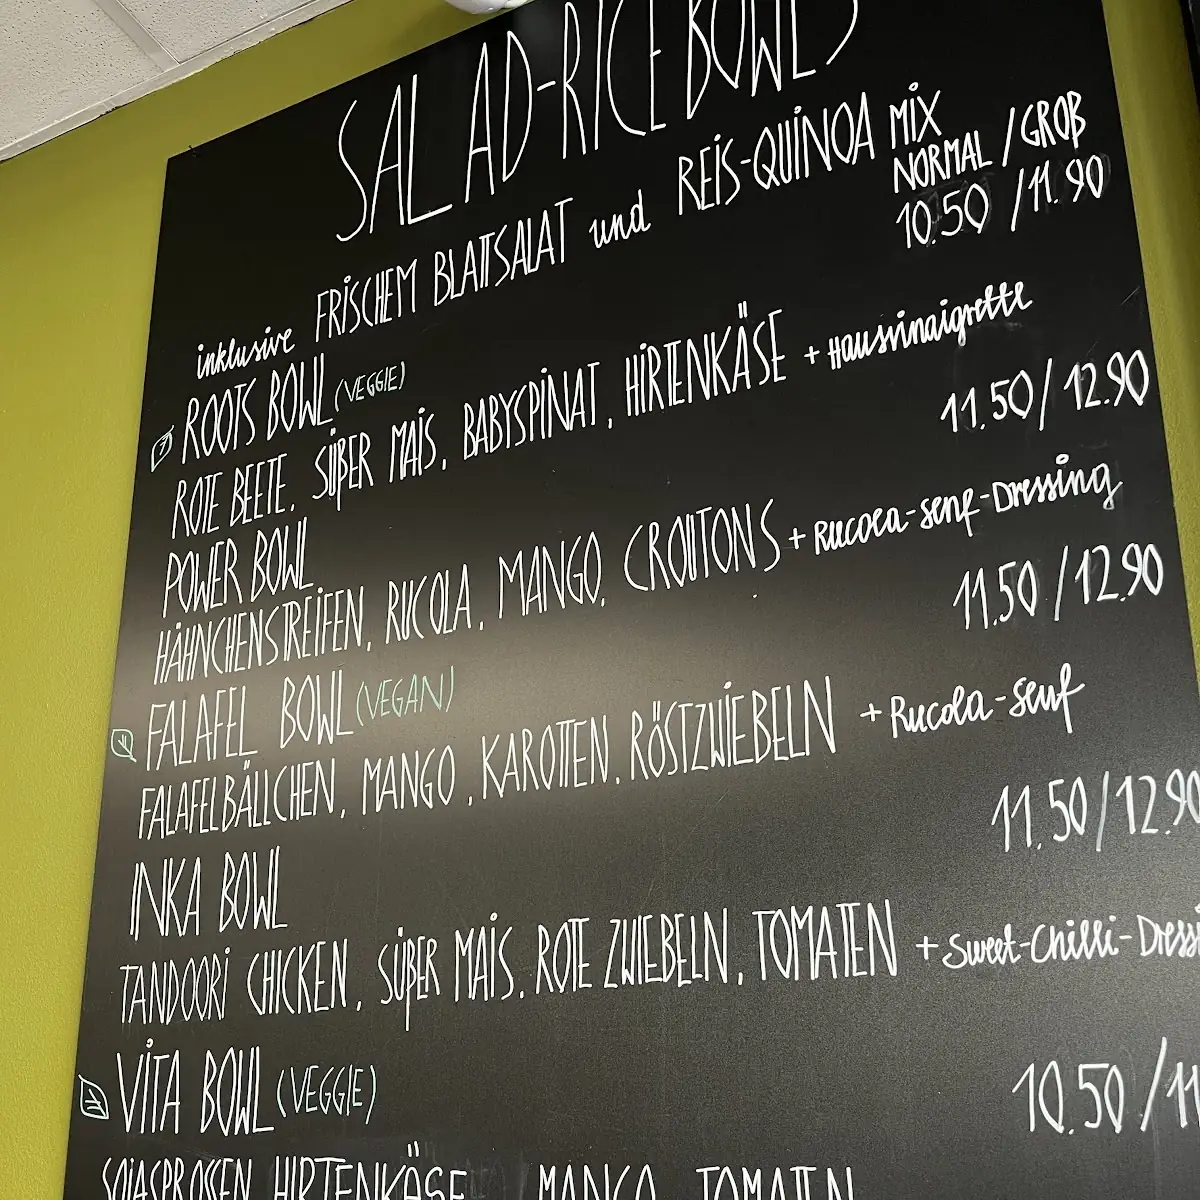 SALAD-RICEBOWLS
inklusive FRISCHEM BLATTSALAT und REIS-QUINOA MIX
NORMAL / GROß
ROOTS BOWL (VEGGIE) 10.50 / 11.90
ROTE BEETE, SÜßER MAIS, BABYSPINAT, HIRTENKÄSE + Hausvinaigrette
POWER BOWL 11.50 / 12.90
HÄHNCHENSTREIFEN, RUCOLA, MANGO, CROUTONS + Rucola-Senf-Dressing
FALAFEL BOWL (VEGAN) 11.50 / 12.90
FALAFELBÄLLCHEN, MANGO, KAROTTEN, RÖSTZWIEBELN + Rucola-Senf
INKA BOWL 11.50 / 12.90
TANDOORI CHICKEN, SÜßER MAIS, ROTE ZWIEBELN, TOMATEN + Sweet-Chilli-Dressi
VITA BOWL (VEGGIE) 10.50 / 11
SOJASPROSSEN, HIRTENKÄSE, MANGO, TOMATEN